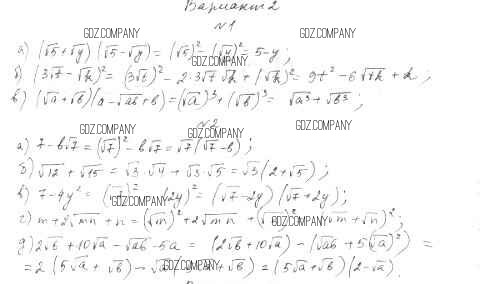 Вариант 2
GDZ.COMPANY GDZ.COMPANY
№1
а) (√5+√y)(√5-√y) = (√5)² - (√y)² = 5-y;
GDZ.COMPANY
б) (3√7 - √k)² = (3√t)² - 2·3√7 √k + (√k)² = 9t² - 6√7k + k;
в) (√a+√b)(a-√ab+b) = (√a)³ + (√b)³ = √a³ + √b³;
GDZ.COMPANY GDZ.COMPANY GDZ.COMPANY
№2
а) 7-b√7 = (√7)² - b√7 = √7(√7-b);
б) √12 + √15 = √3·√4 + √3·√5 = √3(2+√5);
в) 7-4y² = (√7)² - (2y)² = (√7-2y)(√7+2y);
GDZ.COMPANY
г) m+2√mn+n = (√m)² + 2√mn + (√n)² = (√m+√n)²;
GDZ.COMPANY
д) 2√b + 10√a - √ab - 5a = (2√b + 10√a) - (√ab + 5(√a)²) =
= 2(5√a + √b) - √a(5√a + √b) = (5√a+√b)(2-√a).
GDZ.COMPANY